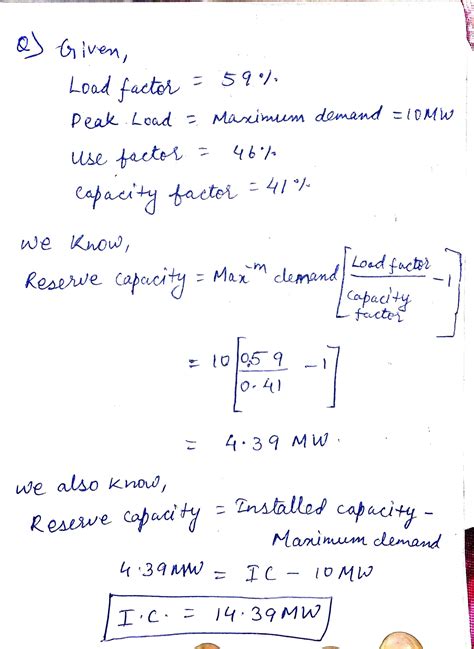 Q) Given,
Load factor = 59%
Peak Load = Maximum demand = 10MW
Use factor = 46%
Capacity factor = 41%
We Know,
Reserve capacity = Max^m demand [Load factor / capacity factor - 1]
= 10 [0.59 / 0.41 - 1]
= 4.39 MW.
We also know,
Reserve capacity = Installed capacity -
Maximum demand
4.39MW = IC - 10MW
I.C. = 14.39MW